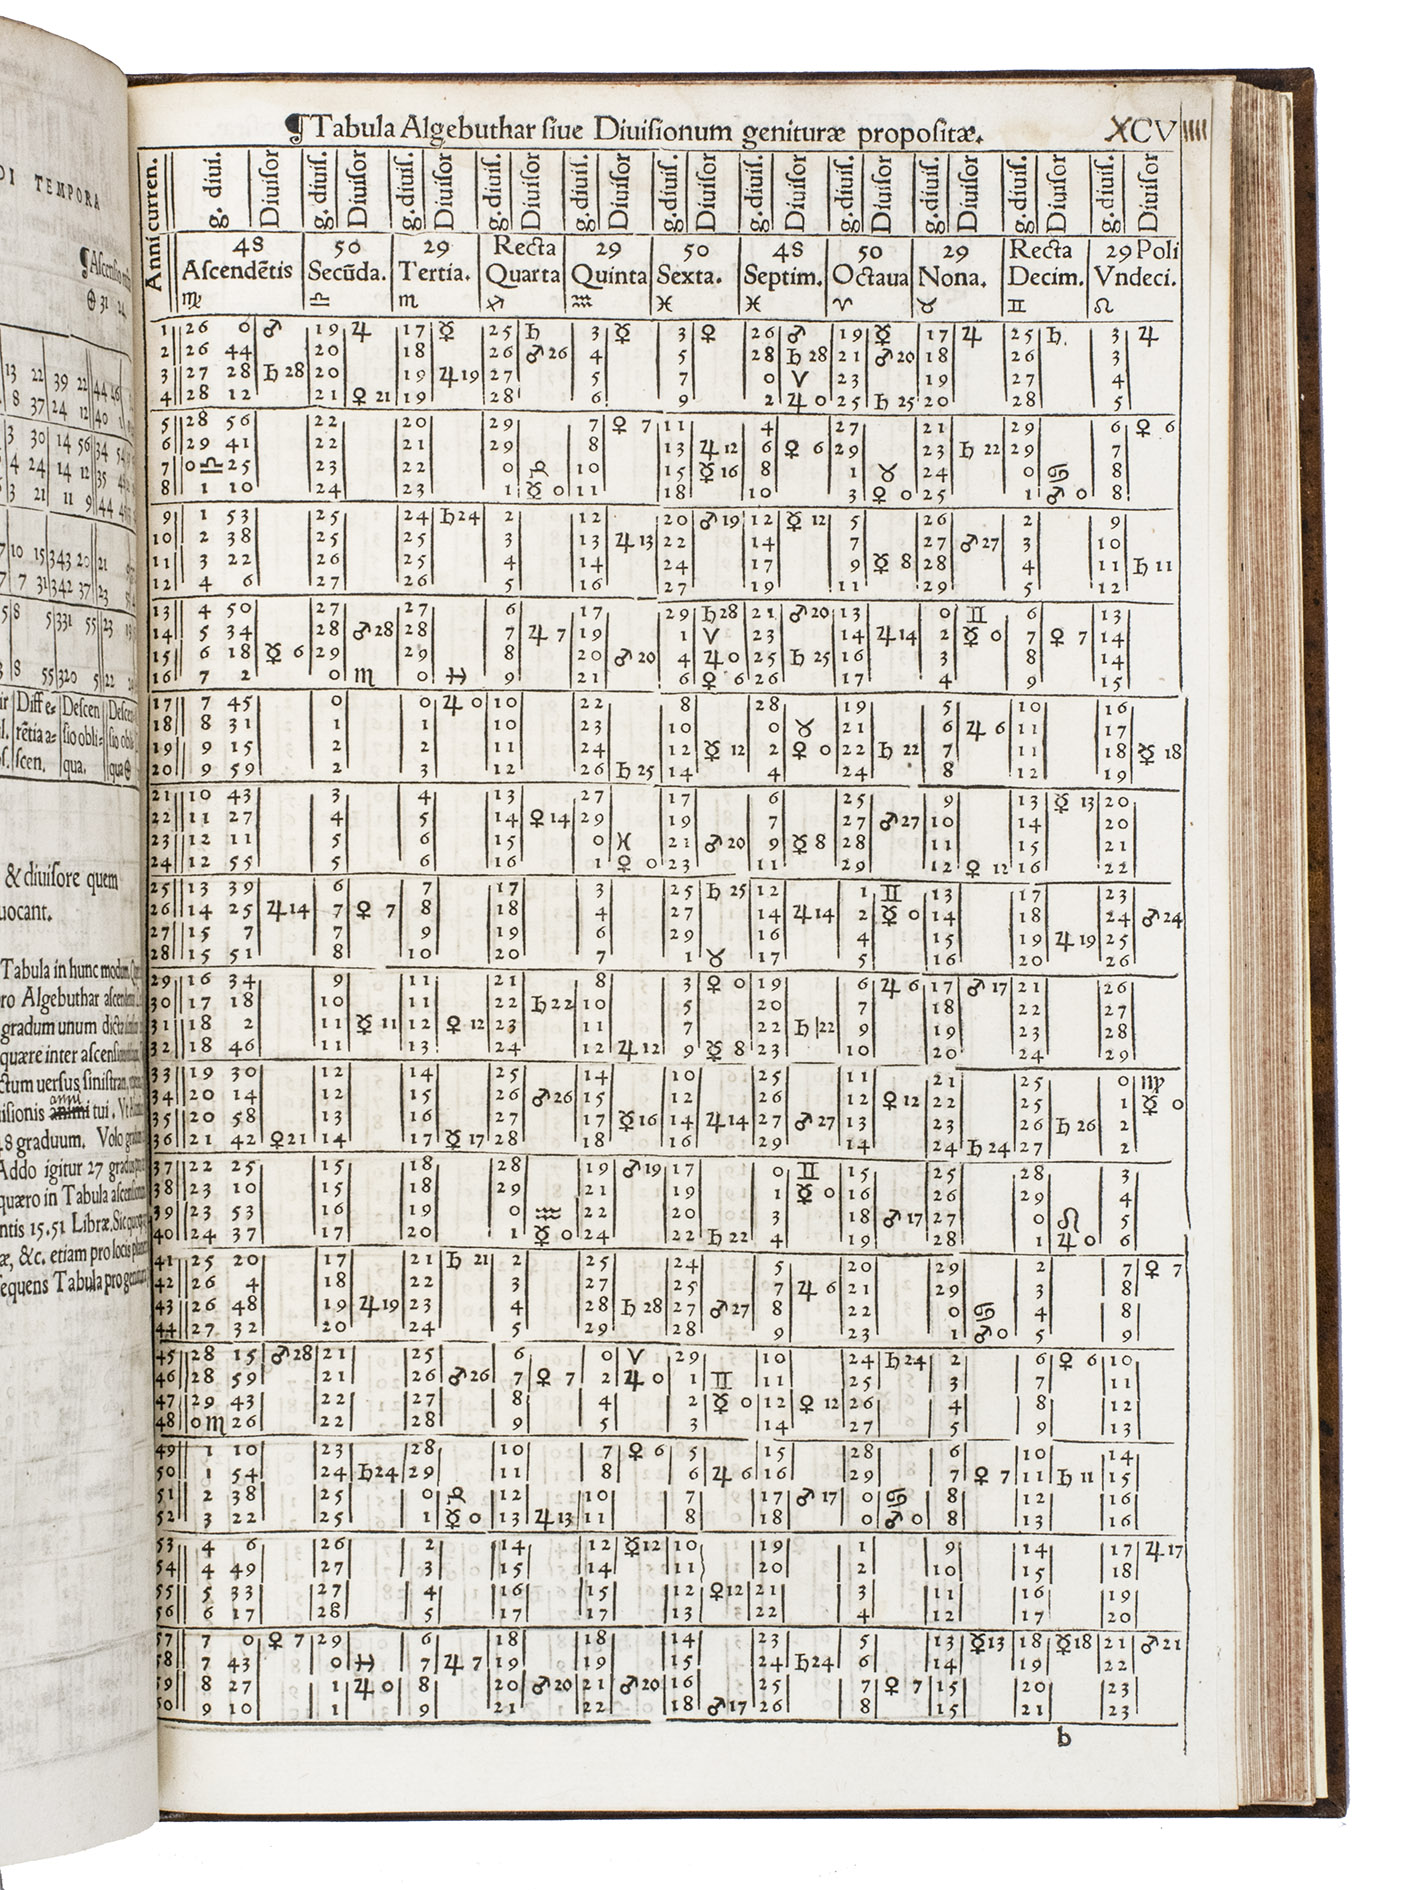 DI TEMPORA
& diuisore quem
uocant.
Tabula in hunc modum
ro Algebuthar
gradum unum
quære inter
ctum uersus sinistram
anni
uisionis animi tui.
48 graduum. Volo
Addo igitur 27
quæro in Tabula
ntis 15.51 Libræ. Sic
æ, &c. etiam pro locis
sequens Tabula pro
¶Tabula Algebuthar siue Diuisionum genituræ propositæ. XCV IIII
Anni curren. g. diui. Diuisor g. diuis. Diuisor g. diuis. Diuisor g. diuis. Diuisor g. diuis. Diuisor g. diuis. Diuisor g. diuis. Diuisor g. diuis. Diuisor g. diuis. Diuisor g. diuis. Diuisor g. diuis. Diuisor
48 50 29 Recta 29 50 48 50 29 Recta 29 Poli
Ascendẽtis Secũda. Tertia. Quarta Quinta Sexta. Septim. Octaua Nona. Decim. Vndeci.
♍ ♎ ♏ ♐ ♒ ♓ ♓ ♈ ♉ ♊ ♌
1 26 0 ♂ 19 ♃ 17 ☿ 25 ♄ 3 ☿ 3 ♀ 26 ♂ 19 ☿ 17 ♃ 25 ♄ 3 ♃
2 26 44 20 18 26 ♂ 26 4 5 28 ♄ 28 21 ♂ 20 18 26 3
3 27 28 ♄ 28 20 19 ♃ 19 27 5 7 0 ♈ 23 19 27 4
4 28 12 21 ♀ 21 19 28 6 9 2 ♃ 0 25 ♄ 25 20 28 5
5 28 56 22 20 29 7 ♀ 7 11 4 27 21 29 6 ♀ 6
6 29 41 22 21 29 8 13 ♃ 12 6 ♀ 6 29 23 ♄ 22 29 7
7 0 ♎ 25 23 22 0 ♑ 10 15 ☿ 16 8 1 ♉ 24 0 ♋ 8
8 1 10 24 23 1 ☿ 0 11 18 10 3 ♀ 0 25 1 ♂ 0 8
9 1 53 25 24 ♄ 24 2 12 20 ♂ 19 12 ☿ 12 5 26 2 9
10 2 38 25 25 3 13 ♃ 13 22 14 7 27 ♂ 27 3 10
11 3 22 26 25 4 14 24 17 9 ☿ 8 28 4 11 ♄ 11
12 4 6 27 26 5 16 27 19 11 29 5 12
13 4 50 27 27 6 17 29 ♄ 28 21 ♂ 20 13 0 ♊ 6 13
14 5 34 28 ♂ 28 28 7 ♃ 7 19 1 ♈ 23 14 ♃ 14 2 ☿ 0 7 ♀ 7 14
15 6 18 ☿ 6 29 29 8 20 ♂ 20 4 ♃ 0 25 ♄ 25 16 3 8 14
16 7 2 0 ♏ 0 ♐ 9 21 6 ♀ 6 26 17 4 9 15
17 7 45 0 0 ♃ 0 10 22 8 28 19 5 10 16
18 8 31 1 1 10 23 10 0 ♉ 21 6 ♃ 6 11 17
19 9 15 2 2 11 24 12 ☿ 12 2 ♀ 0 22 ♄ 22 7 11 18 ☿ 18
20 9 59 2 3 12 26 ♄ 25 14 4 24 8 12 19
21 10 43 3 4 13 27 17 6 25 9 13 ☿ 13 20
22 11 27 4 5 14 ♀ 14 29 19 7 27 ♂ 27 10 14 20
23 12 11 5 6 15 0 ♓ 21 ♂ 20 9 ☿ 8 28 11 15 21
24 12 55 5 6 16 1 ♀ 0 23 11 29 12 ♀ 12 16 22
25 13 39 6 7 17 3 25 ♄ 25 12 1 ♊ 13 17 23
26 14 25 ♃ 14 7 ♀ 7 8 18 4 27 14 ♃ 14 2 ☿ 0 14 18 24 ♂ 24
27 15 7 7 9 19 6 29 16 4 15 19 ♃ 19 25
28 15 51 8 10 20 7 1 ♉ 17 5 16 20 26
29 16 34 9 11 21 8 3 ♀ 0 19 6 ♃ 6 17 ♂ 17 21 26
30 17 18 10 11 22 ♄ 22 10 5 20 7 18 22 27
31 18 2 11 ☿ 11 12 ♀ 12 23 11 7 22 ♄ 22 9 19 23 28
32 18 46 11 13 24 12 ♃ 12 9 ☿ 8 23 10 20 24 29
33 19 30 12 14 25 14 10 25 11 21 25 0 ♍
34 20 14 12 15 26 ♂ 26 15 12 26 12 ♀ 12 22 25 1 ☿ 0
35 20 58 13 16 27 17 ☿ 16 14 ♃ 14 27 ♂ 27 13 23 26 ♄ 26 2
36 21 42 ♀ 21 14 17 ☿ 17 28 18 16 29 14 24 ♄ 24 27 2
37 22 25 15 18 28 19 ♂ 19 17 0 ♊ 15 25 28 3
38 23 10 15 18 29 21 19 1 ☿ 0 16 26 29 4
39 23 53 16 19 0 ♒ 22 20 3 18 ♂ 17 27 0 ♌ 5
40 24 37 17 20 1 ☿ 0 24 22 ♄ 22 4 19 28 1 ♃ 0 6
41 25 20 17 21 ♄ 21 2 25 24 5 20 29 2 7 ♀ 7
42 26 4 18 22 3 27 25 7 ♃ 6 21 29 3 8
43 26 48 19 ♃ 19 23 4 28 ♄ 28 27 ♂ 27 8 22 0 ♋ 4 8
44 27 32 20 24 5 29 28 9 23 1 ♂ 0 5 9
45 28 15 ♂ 28 21 25 6 0 ♈ 29 10 24 ♄ 24 2 6 ♀ 6 10
46 28 59 21 26 ♂ 26 7 ♀ 7 2 ♃ 0 1 ♊ 11 25 3 7 11
47 29 43 22 27 8 4 2 ☿ 0 12 ♀ 12 26 4 8 12
48 0 ♏ 26 22 28 9 5 3 14 27 5 9 13
49 1 10 23 28 10 7 ♀ 6 5 15 28 6 10 14
50 1 54 24 ♄ 24 29 11 8 6 ♃ 6 16 29 7 ♀ 7 11 ♄ 11 15
51 2 38 25 0 ♑ 12 10 7 17 ♂ 17 0 ♋ 8 12 16
52 3 22 25 1 ☿ 0 13 ♃ 13 11 8 18 0 ♂ 0 8 13 16
53 4 6 26 2 14 12 ☿ 12 10 19 1 9 14 17 ♃ 17
54 4 49 27 3 15 14 11 20 2 10 15 18
55 5 33 27 4 16 15 12 ♀ 12 21 3 11 16 19
56 6 17 28 5 17 17 13 22 4 12 17 20
57 7 0 ♀ 7 29 6 18 18 14 23 5 13 ☿ 13 18 ☿ 18 21 ♂ 21
58 7 43 0 ♐ 7 ♃ 7 19 19 15 24 ♄ 24 6 14 19 22
59 8 27 1 ♃ 0 8 20 ♂ 20 21 ♂ 20 16 25 7 ♀ 7 15 20 23
60 9 10 1 9 21 22 18 ♂ 17 26 8 15 21 23
b